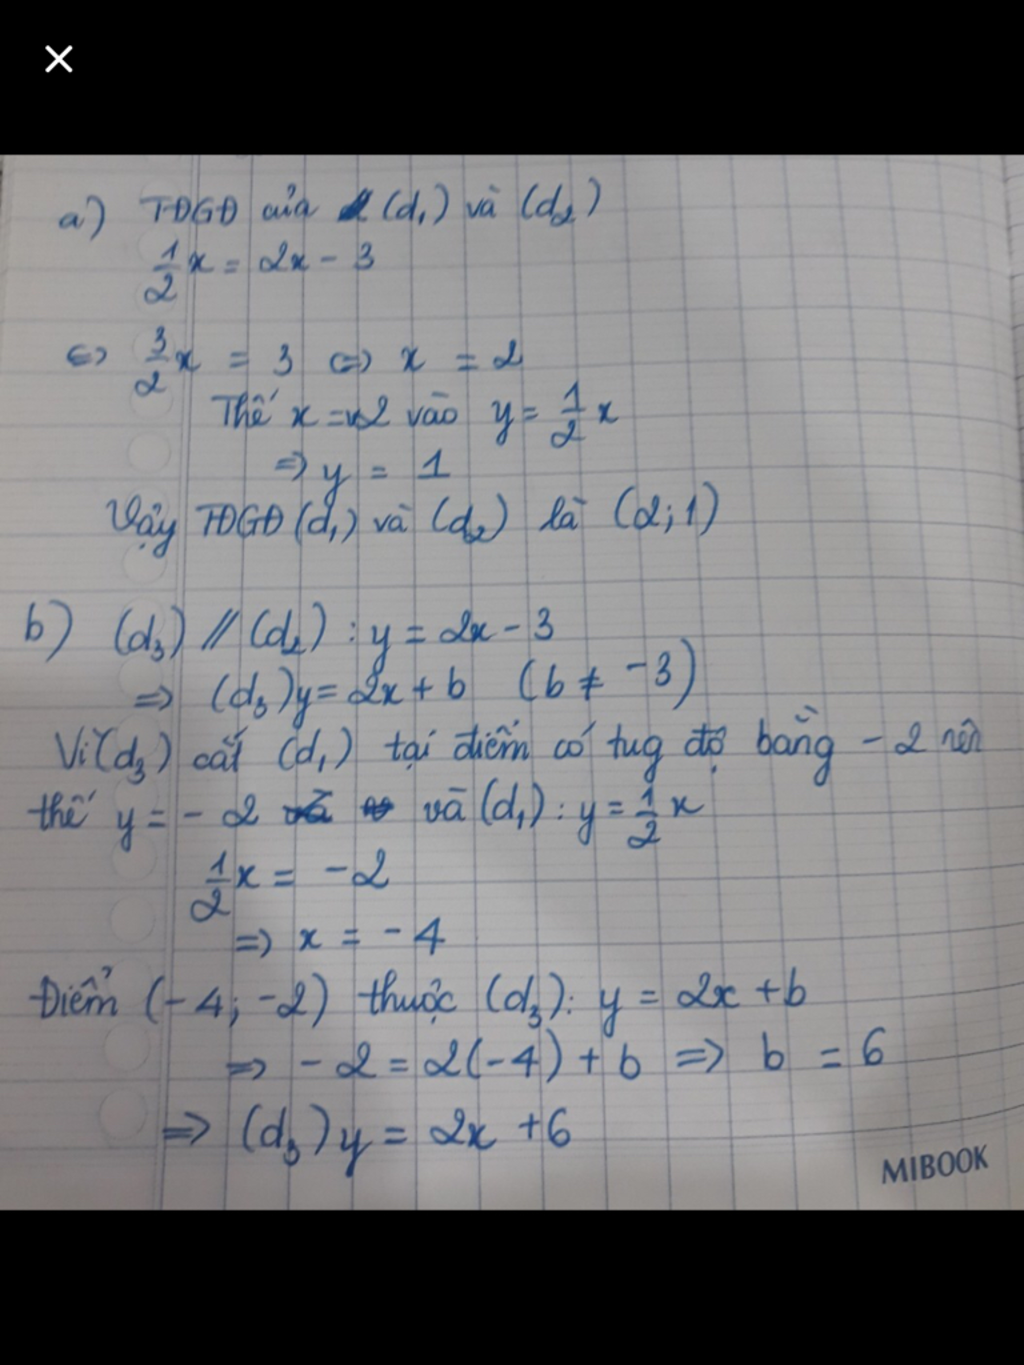 a) TĐGĐ của (d₁) và (d₂)
1/2 x = 2x - 3
<=> 3/2 x = 3 <=> x = 2
Thế x = 2 vào y = 1/2 x
=> y = 1
Vậy TĐGĐ (d₁) và (d₂) là (2; 1)
b) (d₃) // (d₂) : y = 2x - 3
=> (d₃) y = 2x + b (b ≠ -3)
Vì (d₃) cắt (d₁) tại điểm có tug độ bằng - 2 nên
thế y = - 2 và (d₁) : y = 1/2 x
1/2 x = -2
=> x = - 4
Điểm (- 4; -2) thuộc (d₃): y = 2x + b
=> - 2 = 2(-4) + b => b = 6
=> (d₃) y = 2x + 6
MIBOOK